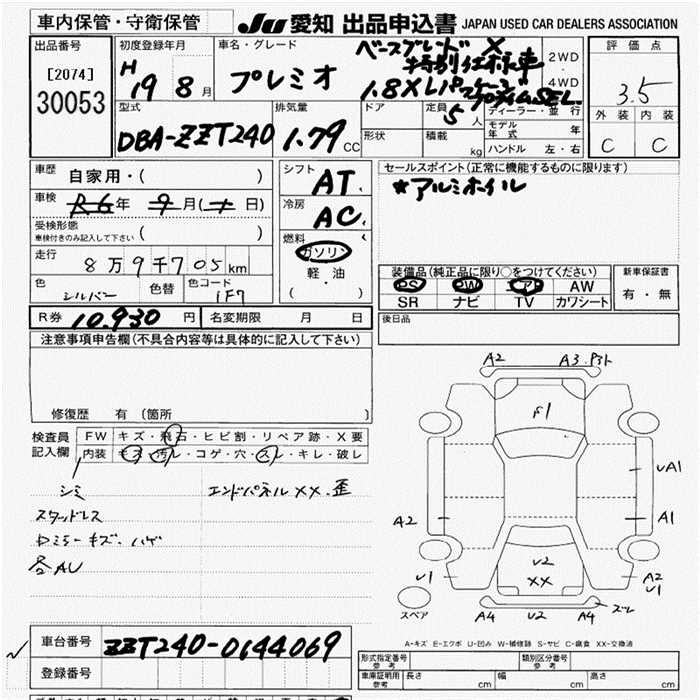 車内保管・守衛保管
JU 愛知 出品申込書 JAPAN USED CAR DEALERS ASSOCIATION
出品番号
[2074]
30053
初度登録年月
H 19 8月
車名・グレード
プレミオ
ベースグレード X
特別仕様車
1.8X Lパッケージ
プライムSEL.
2WD
4WD
評価点
3.5
外装 内装
C C
型式
DBA-ZZT240
排気量
1.79 CC
ドア
形状
定員 5人
積載 kg
ディーラー・並行
モデル年式 年
ハンドル 左・右
車歴 自家用・( )
車検 R6年 9月( 日)
受検形態
車検付きのみ記入して下さい ( )
走行 8万9千705km
色 シルバー 色替 色コード 1F7
シフト AT.
冷房 AC.
燃料
ガソリン
軽油
・
( )
セールスポイント(正常に機能するものに限ります)
★アルミホイル
装備品(純正品に限り○をつけてください)
PS PW エアB AW
SR ナビ TV カワシート
新車保証書
有・無
後日品
R券 10.930円 名変期限 月 日
注意事項申告欄(不具合内容等は具体的に記入して下さい)
修復歴 有 〔箇所 〕
検査員記入欄
FW キズ・飛石・ヒビ割・リペア跡・X要
内装 キズ・汚レ・コゲ・穴・スレ・キレ・破レ
シミ エンドパネルXX.歪
スタッドレス
ロミラーキズ.ハゲ
各AU
A2 A3.
F1
UA1
A2 A1
U2
XX
U1 A2
U1
スペア
A4 U2 A4 スレ
A-キズ E-エクボ U-凹み W-補修跡 S-サビ C-腐食 XX-交換済
車台番号 ZZT240-0144069
登録番号
形式指定番号 参考
類別区分番号 参考
車庫証明用 参考 長さ cm 幅 cm 高さ cm